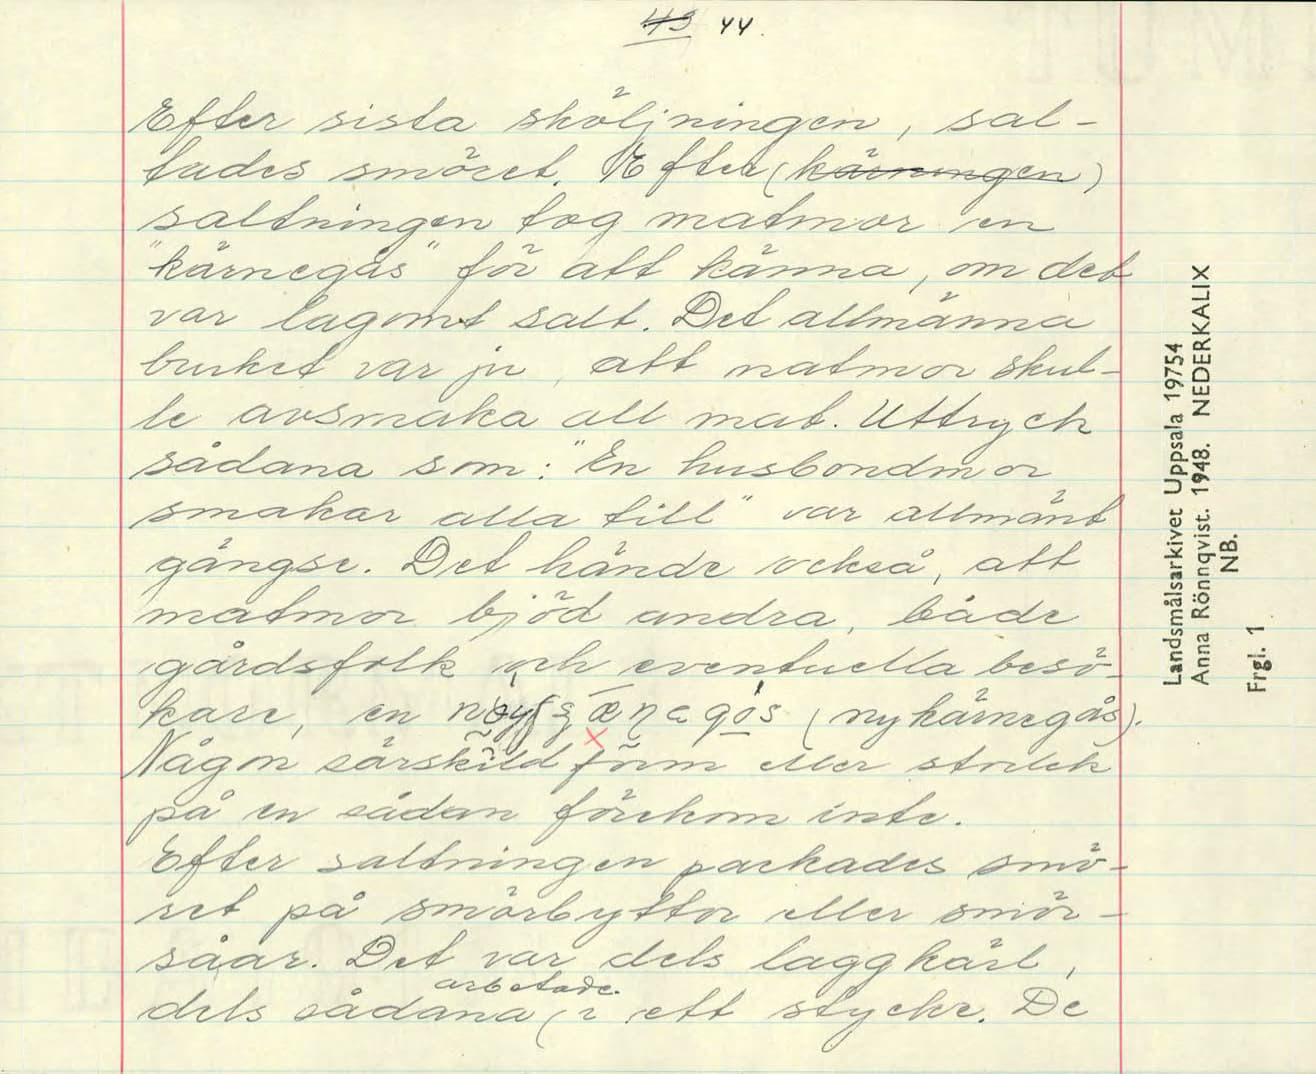 43 44.
Efter sista sköljningen, sal-
tades smöret. Efter (kärningen)
saltningen tog matmor en
"kärnegås" för att känna, om det
var lagomt salt. Det allmänna
bruket var ju, att matmor skul-
le avsmaka all mat. Uttryck
sådana som: "En husbondmor
smakar alla till" var allmänt
gängse. Det hände också, att
matmor bjöd andra, både
gårdsfolk och eventuella besö-
kare, en (nykärnegås).
Någon särskild form eller storlek
på en sådan förekom inte.
Efter saltningen packades smö-
ret på smörbyttor eller smör-
såar. Det var dels laggkärl,
arbetade
dels sådana i ett stycke. De
Landsmålsarkivet Uppsala 19754
Anna Rönnqvist. 1948. NEDERKALIX
NB.
Frgl. 1